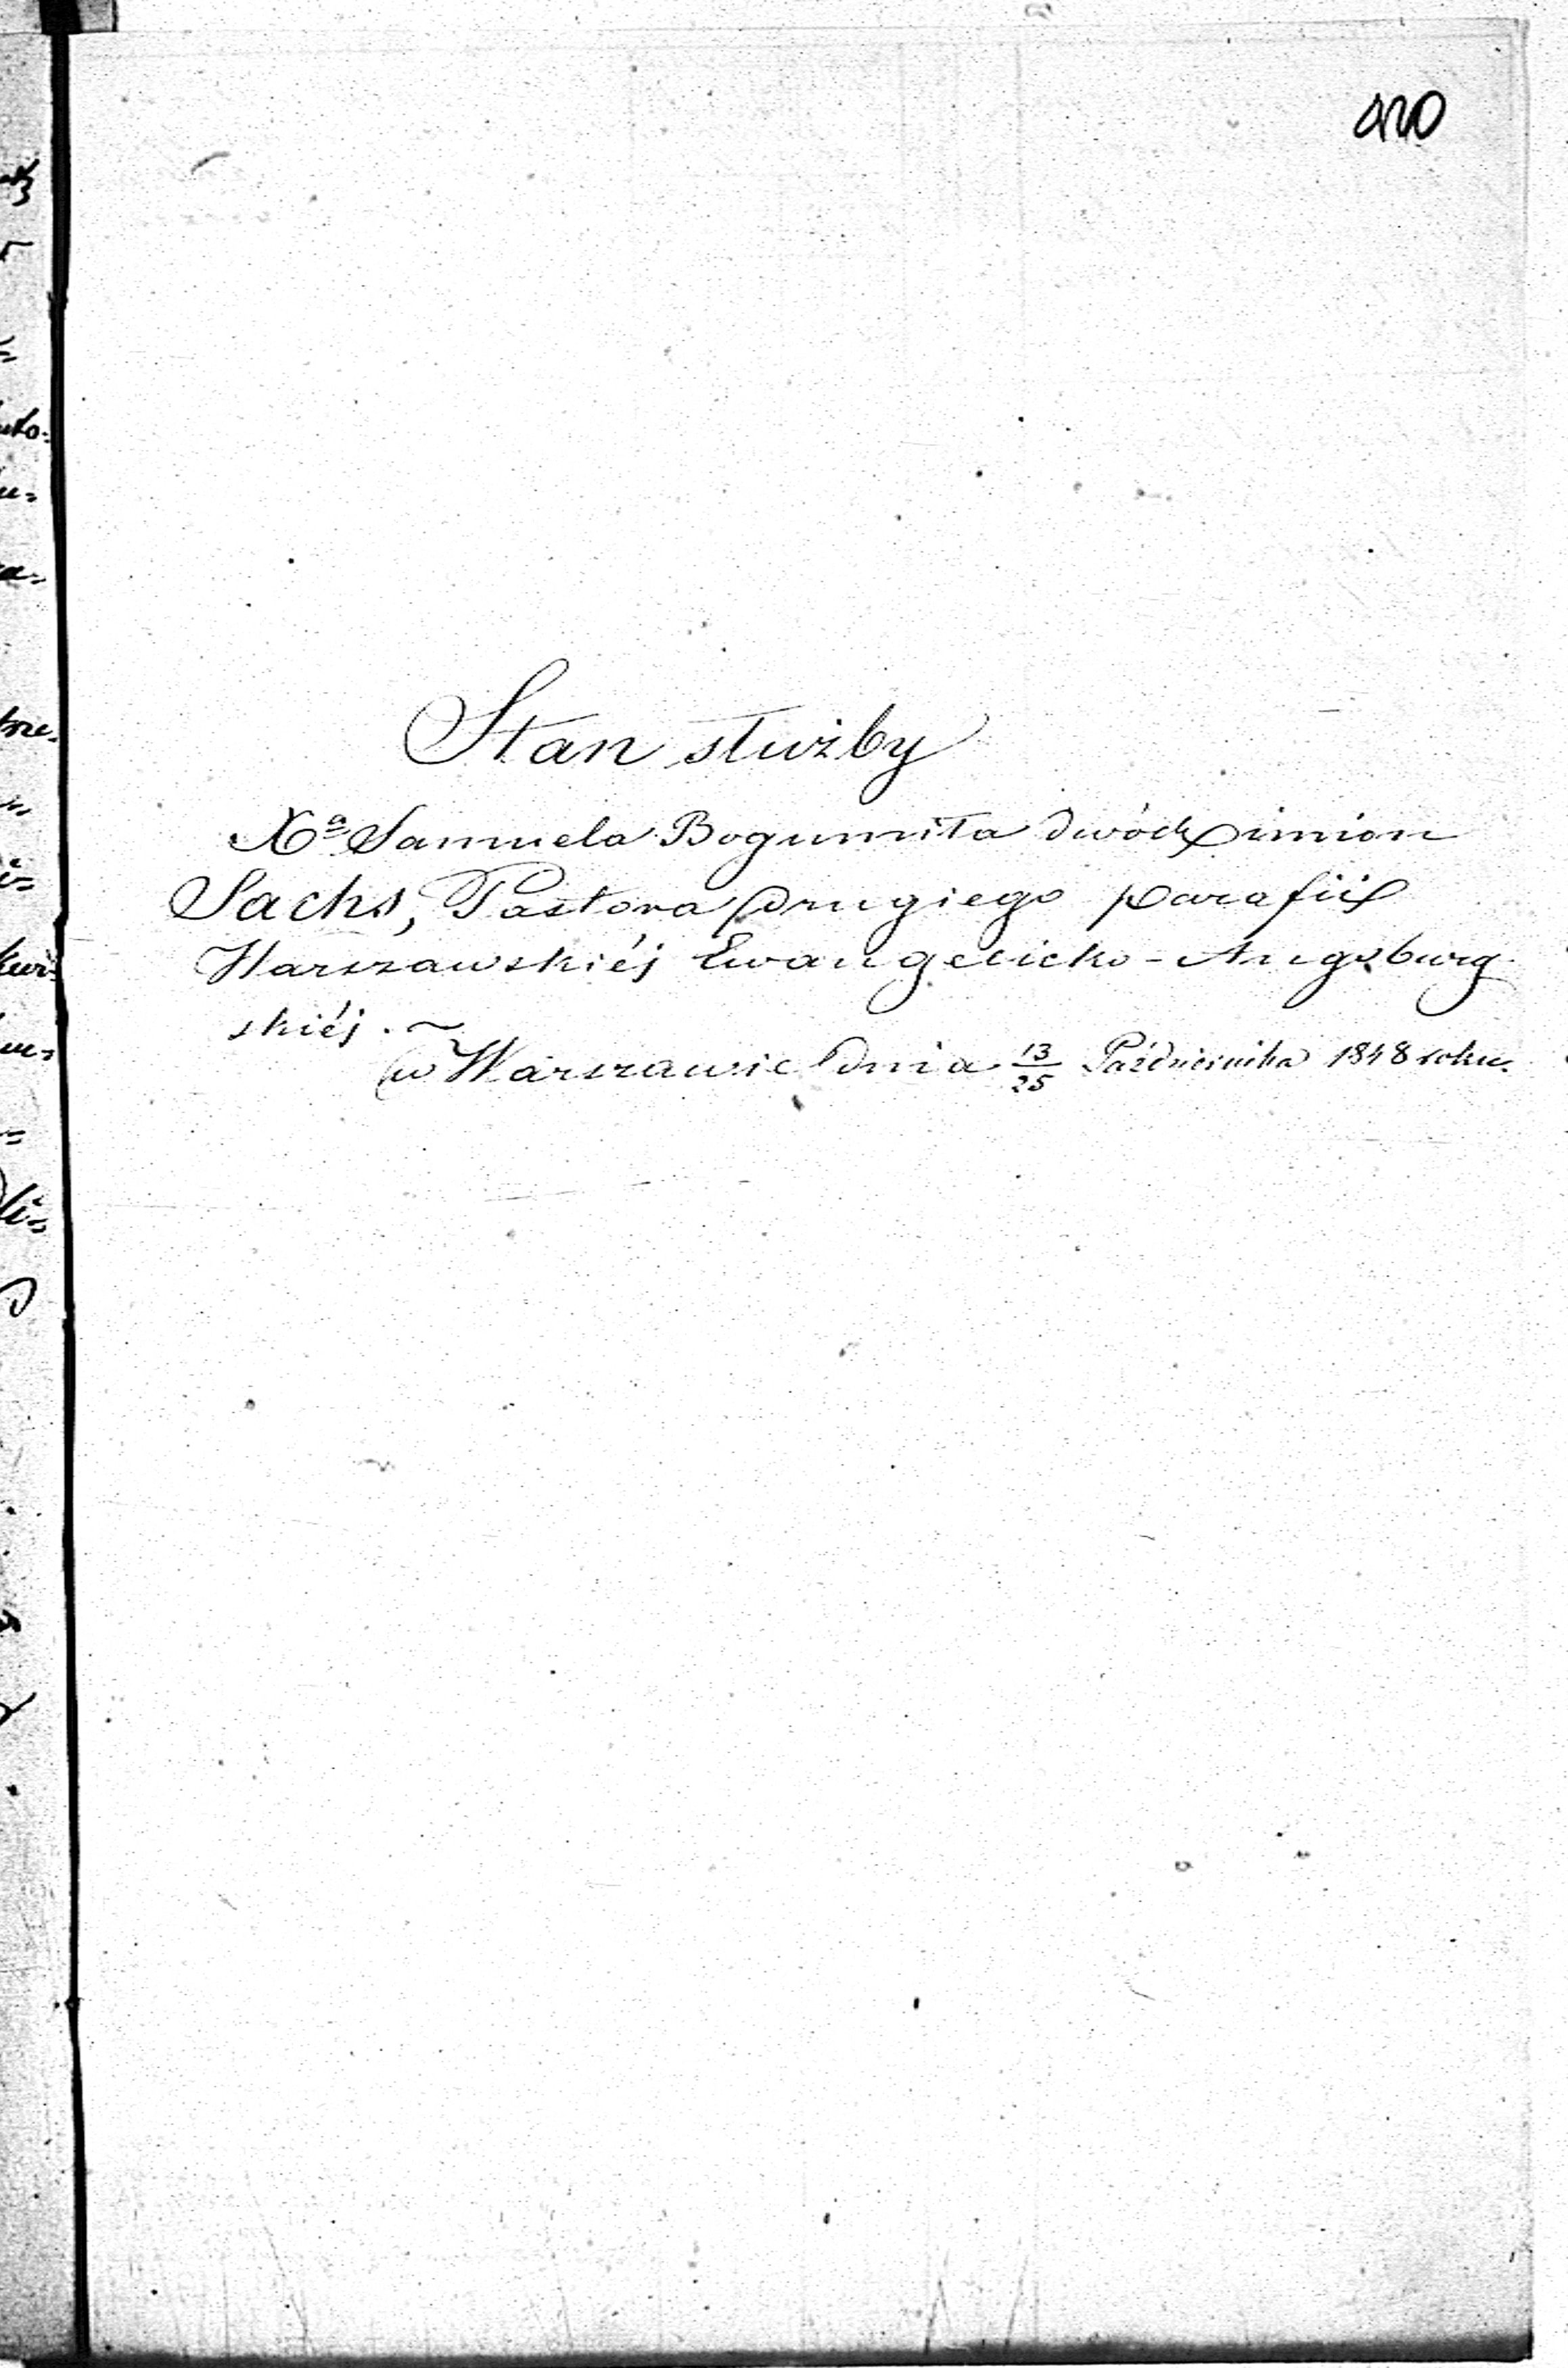 Stan służby
Xa Samuela Bogumiła dwóch imion
Sachs, Pastora drugiego parafii
Warszawskiéj Ewangelicko-Augsburg-
skiéj. ~
w Warszawie dnia 13/25 Października 1848 roku.